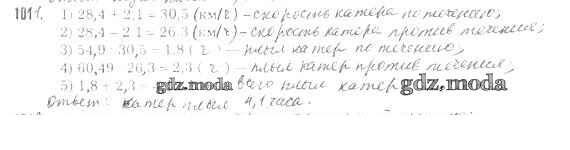 1011.
1) 28,4 + 2,1 = 30,5 (км/ч) – скорость катера по течению;
2) 28,4 – 2,1 = 26,3 (км/ч) – скорость катера против течения;
3) 54,9 : 30,5 = 1,8 (ч) – плыл катер по течению;
4) 60,49 : 26,3 = 2,3 (ч) – плыл катер против течения;
5) 1,8 + 2,3 = gdz.moda всего плыл катер gdz.moda
Ответ: катер плыл 4,1 часа.